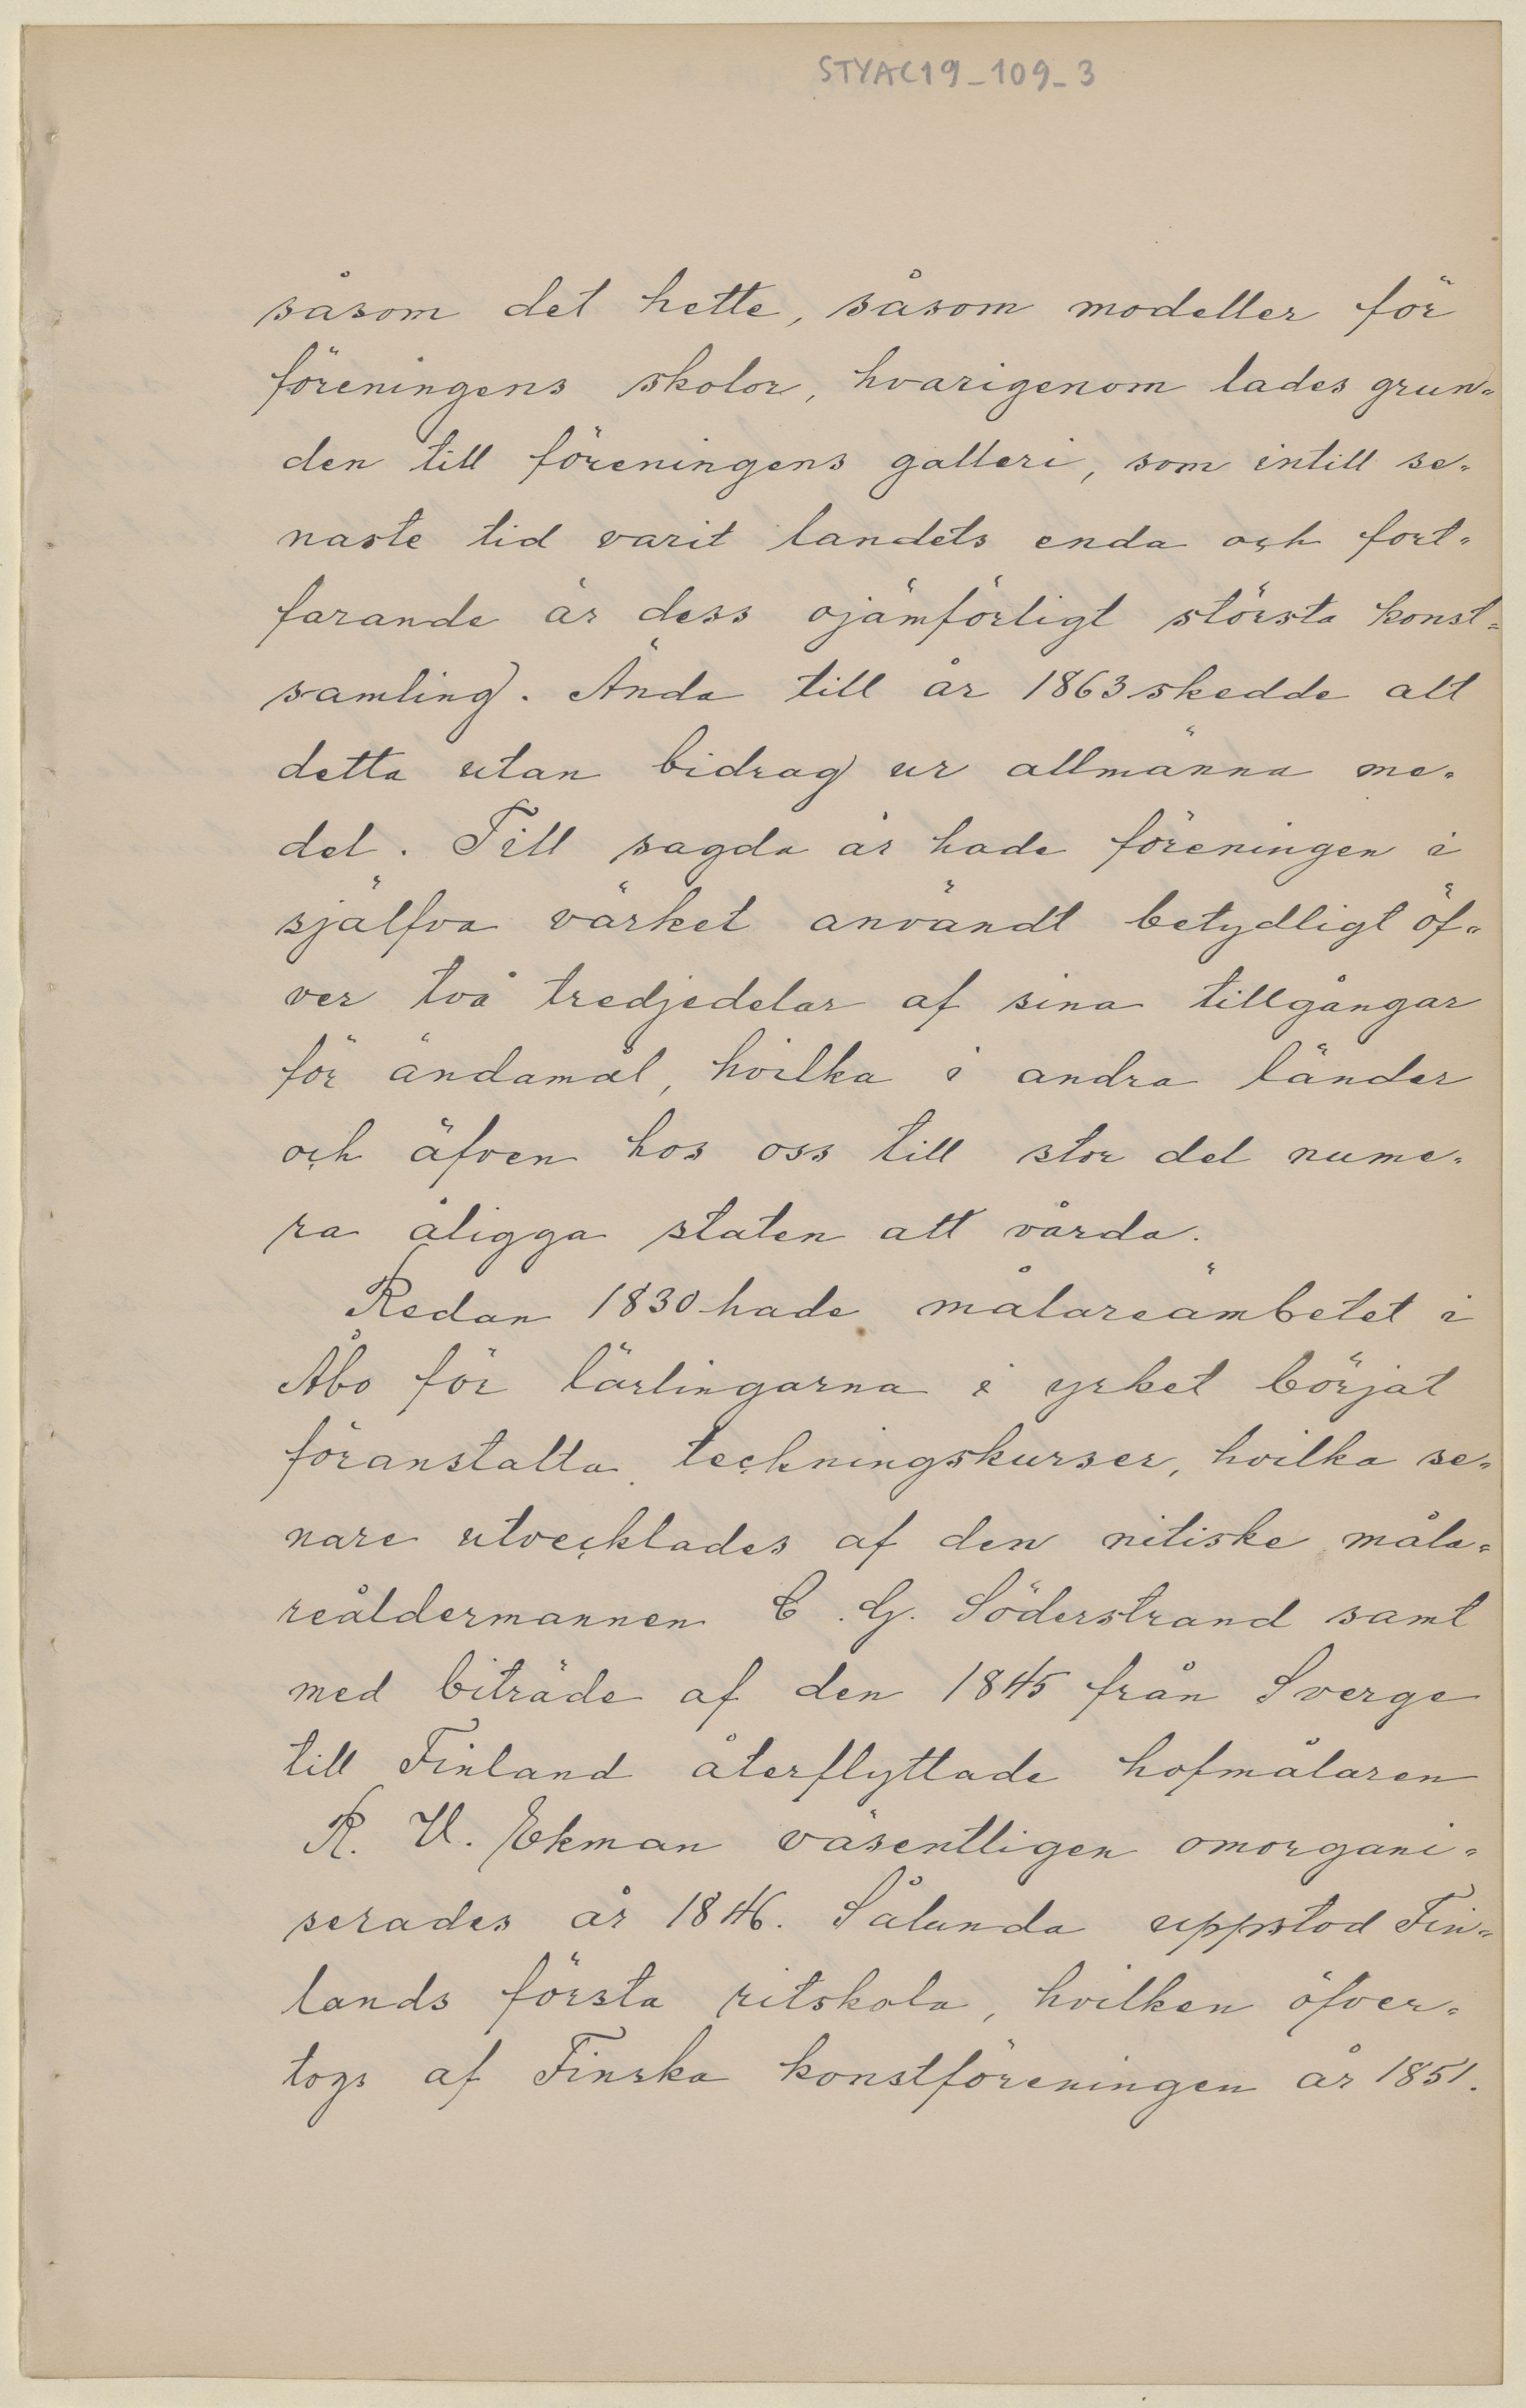 STYAC19_109_3
såsom det hette, såsom modeller för
föreningens skolor, hvarigenom lades grun-
den till föreningens galleri, som intill se-
naste tid varit landets enda och fort-
farande är dess ojämförligt största konst-
samling. Ända till år 1863 skedde allt
detta utan bidrag ur allmänna me-
del. Till sagda år hade föreningen i
själfva värket användt betydligt öf-
ver två tredjedelar af sina tillgångar
för ändamål, hvilka i andra länder
och äfven hos oss till stor del nume-
ra åligga staten att vårda.
Redan 1830 hade målareämbetet i
Åbo för lärlingarna i yrket börjat
föranstalta teckningskurser, hvilka se-
nare utvecklades af den nitiske måla-
reåldermannen C. G. Söderstrand samt
med biträde af den 1845 från Sverge
till Finland återflyttade hofmålaren
R. V. Ekman väsentligen omorgani-
serades år 1846. Sålunda uppstod Fin-
lands första ritskola, hvilken öfver-
togs af Finska konstföreningen år 1851.